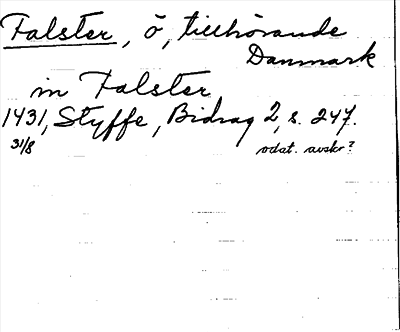 Falster, ö, tillhörande
Danmark
in Falster
1431, Styffe, Bidrag 2, s. 247.
31/8 odat. avskr?